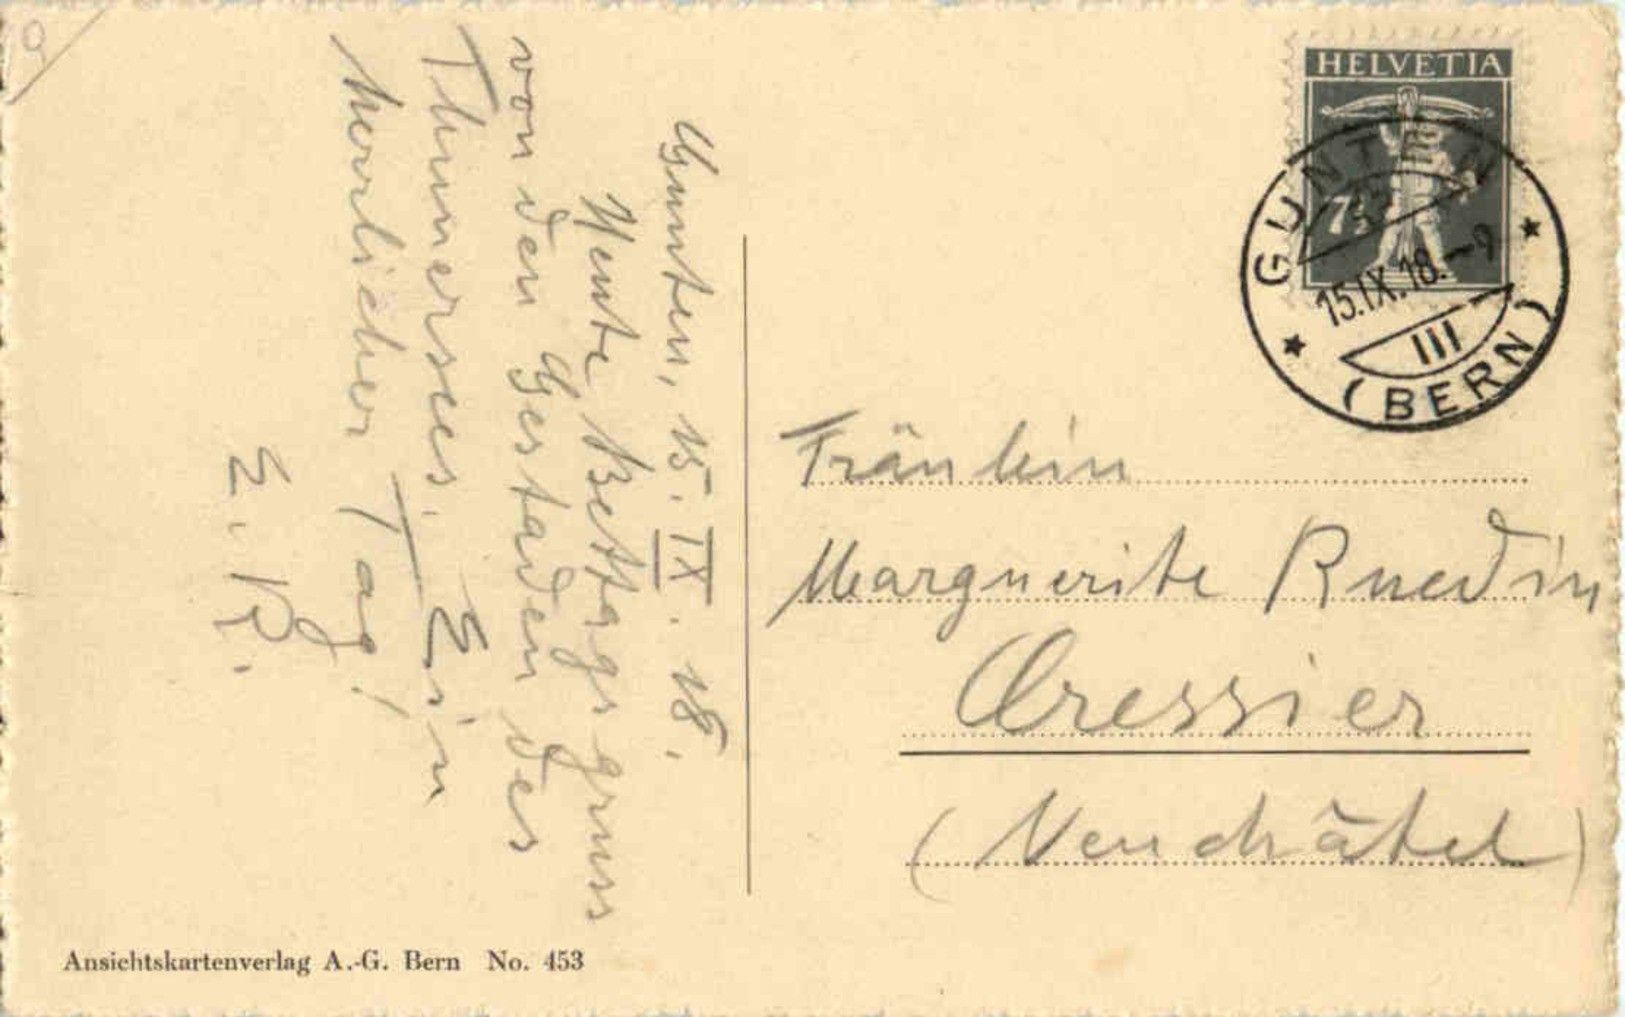 Gunten, 15. IX. 18.
Heute Bettagsgruss
von den Gestaden des
Thunersees. Ein
herrlicher Tag!
E. R.
HELVETIA
7½
GUNTEN
15.IX.18.–9
III
(BERN)
Fräulein
Marguerite Ruedin
Cressier
(Neuchâtel)
Ansichtskartenverlag A.-G. Bern No. 453